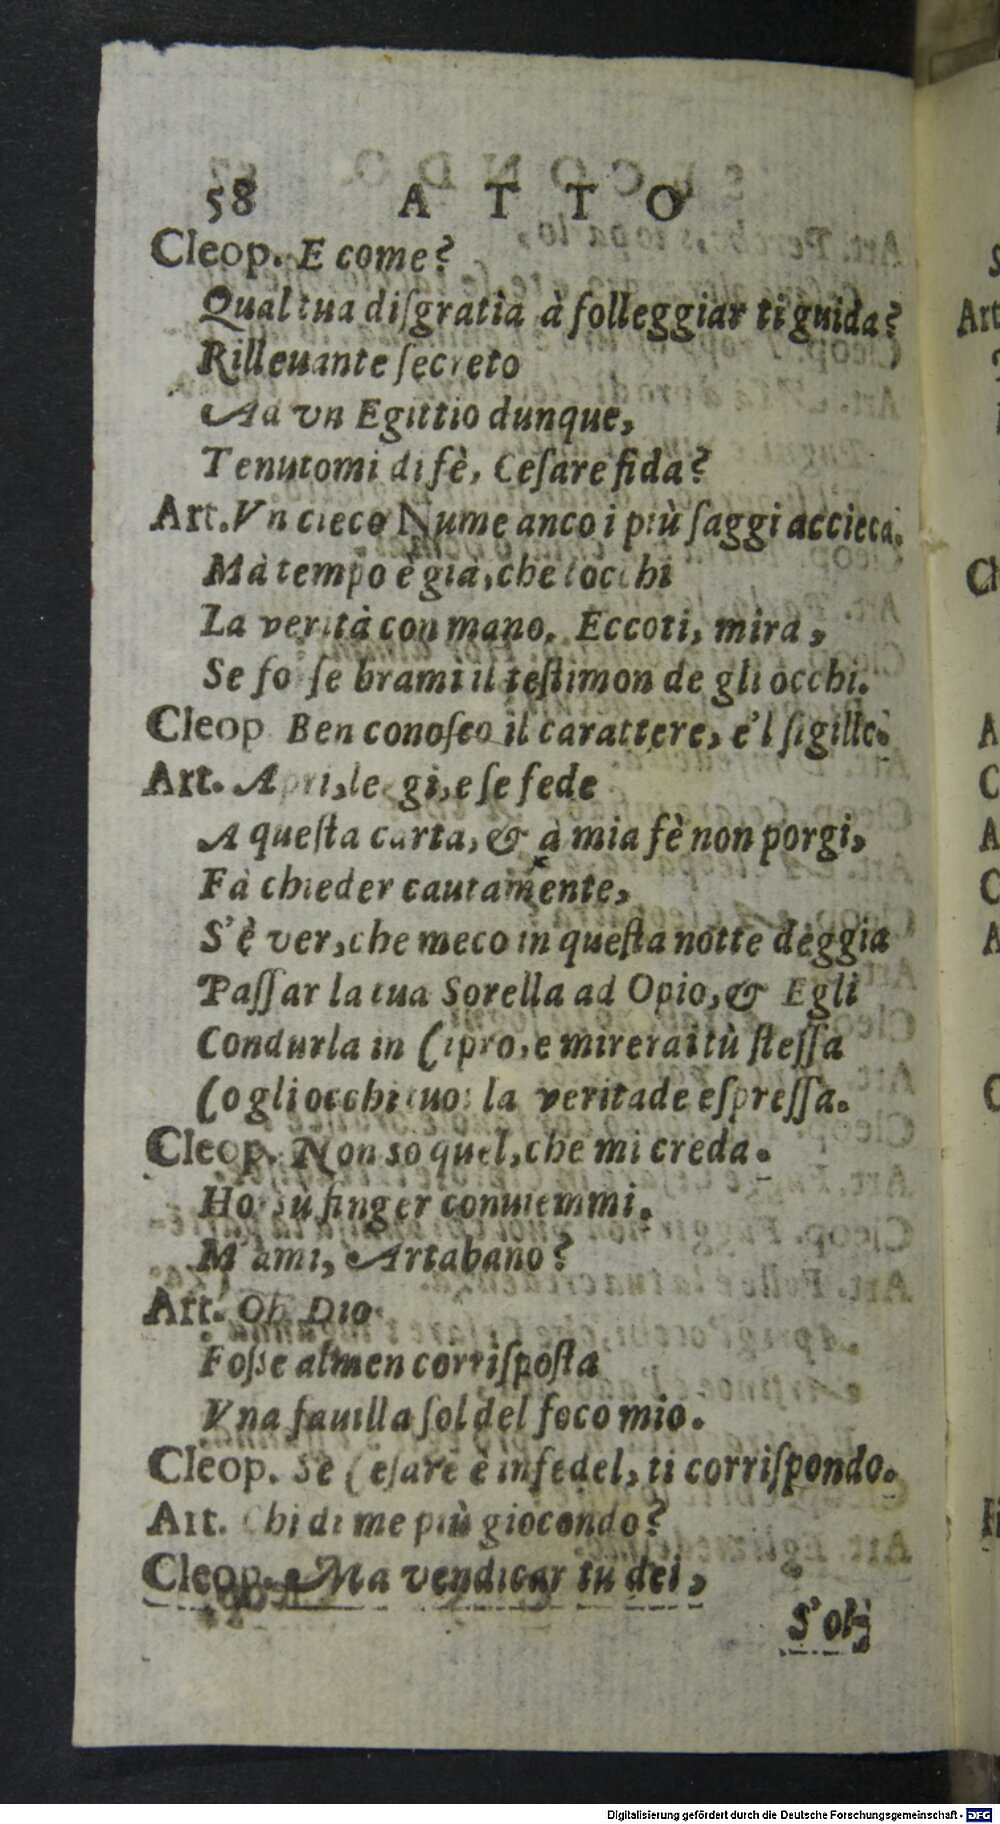 58 ATTO
Cleop. E come?
Qual tua diſgratia à folleggiar ti guida?
Rilleuante ſecreto
Ad vn Egittio dunque,
Tenutomi di fè, Ceſare fida?
Art. Vn cieco Nume anco i più ſaggi accieca.
Mà tempo è già, che tocchi
La verità con mano. Eccoti, mira,
Se forſe brami il teſtimon de gli occhi.
Cleop Ben conoſco il carattere, e'l ſigillo.
Art. Apri, leggi, e ſe fede
A queſta carta, & à mia fè non porgi,
Fà chieder cautamente,
S'è ver, che meco in queſta notte deggia
Paſſar la tua Sorella ad Opio, & Egli
Condurla in Cipro, e mirerai tù ſteſſa
Co gli occhi tuoi la veritade eſpreſſa.
Cleop. Non so quel, che mi creda.
Hor sù finger conuiemmi.
M'ami, Artabano?
Art. Oh Dio
Foſse almen corriſpoſta
Vna fauilla ſol del foco mio.
Cleop. Se Ceſare è infedel, ti corriſpondo.
Art. Chi di me più giocondo?
Cleop. Ma vendicar tù dei,
S'ol-
Art
Cl
A
C
A
C
A
C
Digitalisierung gefördert durch die Deutsche Forschungsgemeinschaft - DFG